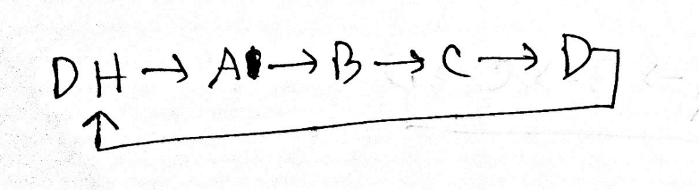 DH → A → B → C → D